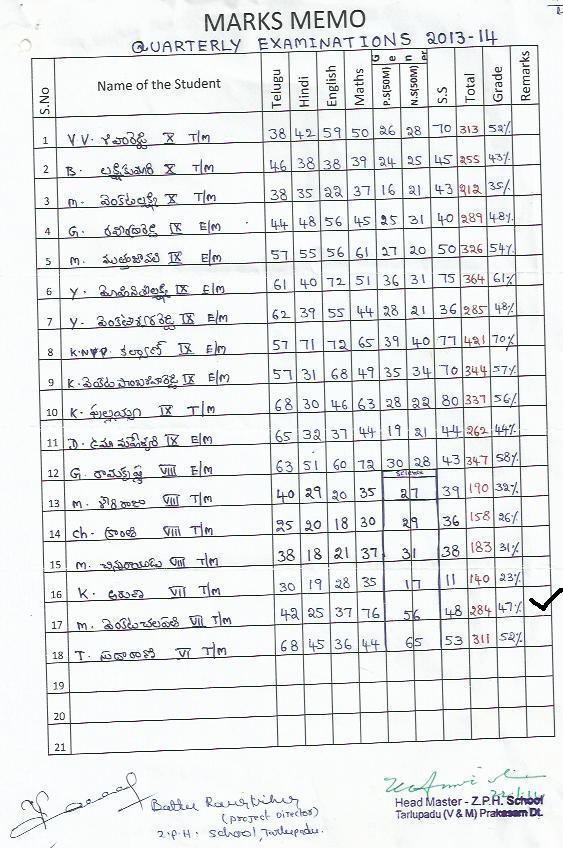 MARKS MEMO
QUARTERLY EXAMINATIONS 2013-14
S.No Name of the Student Telugu Hindi English Maths Gen P.S(50M) N.S(50M) S.S Total Grade Remarks
1 V.V. X T/m 38 42 59 50 26 28 70 313 52%
2 B. లక్ష్మికుమారి X T/m 46 38 38 39 24 25 45 255 43%
3 m. వెంకటలక్ష్మి X T/m 38 35 22 37 16 21 43 212 35%
4 G. IX E/m 44 48 56 45 25 31 40 289 48%
5 m. IX E/m 57 55 56 61 27 20 50 326 54%
6 Y. IX E/m 61 40 72 51 36 31 75 364 61%
7 Y. వెంకటేశ్వరరెడ్డి IX E/m 62 39 55 44 28 21 36 285 48%
8 కళ్యాణ్ IX E/m 57 71 72 65 39 40 77 421 70%
9 K. IX E/m 57 31 68 49 35 34 70 344 57%
10 K. పుల్లయ్య IX T/m 68 30 46 63 28 22 80 337 56%
11 D. ఉమామహేశ్వరి IX E/m 65 32 37 44 19 21 44 262 44%
12 G. రామకృష్ణ VIII E/m 63 51 60 72 30 28 43 347 58%
Science
13 m. శౌరిరాజు VIII T/m 40 29 20 35 27 39 190 32%
14 ch. క్రాంతి VIII T/m 25 20 18 30 29 36 158 26%
15 m. చిన్నరాయుడు VIII T/m 38 18 21 37 31 38 183 31%
16 K. VII T/m 30 19 28 35 17 11 140 23%
17 m. వెంకటచలపతి VII T/m 42 25 37 76 56 48 284 47%
18 T. సుధారాణి VI T/m 68 45 36 44 65 53 311 52%
19
20
21
(project Director)
Z.P.H. School, Tarlupadu.
Head Master - Z.P.H. School
Tarlupadu (V & M) Prakasam Dt.